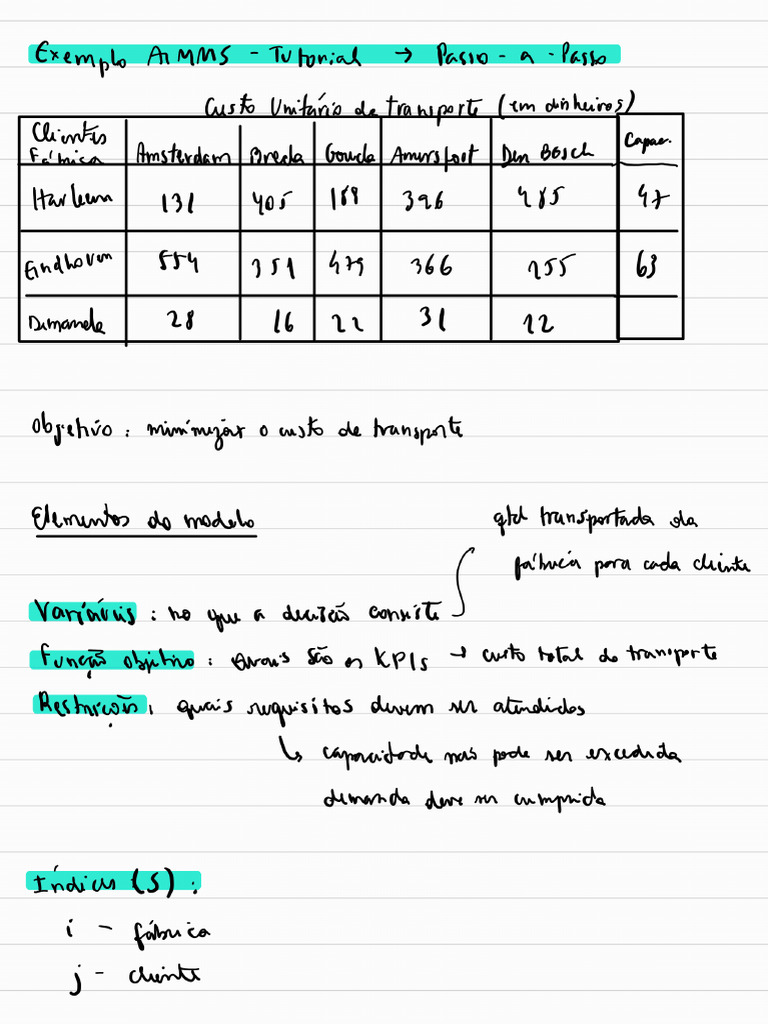 Exemplo AIMMS - Tutorial → Passo - a - Passo
Custo Unitário de transporte (em dinheiros)
Clientes
Fábrica Amsterdam Breda Gouda Amersfoort Den Bosch Capac.
Harleem 131 405 189 396 485 47
Eindhoven 554 351 479 366 155 63
Demanda 28 16 22 31 12
Objetivo : minimizar o custo de transporte
Elementos do modelo
qtd transportada da
fábrica para cada cliente
Variáveis : no que a decisão consiste
Função objetivo : Quais são os KPIs → custo total do transporte
Restrições : quais requisitos devem ser atendidos
↳ capacidade não pode ser excedida
demanda deve ser cumprida
Índices (S) :
i - fábrica
j - cliente